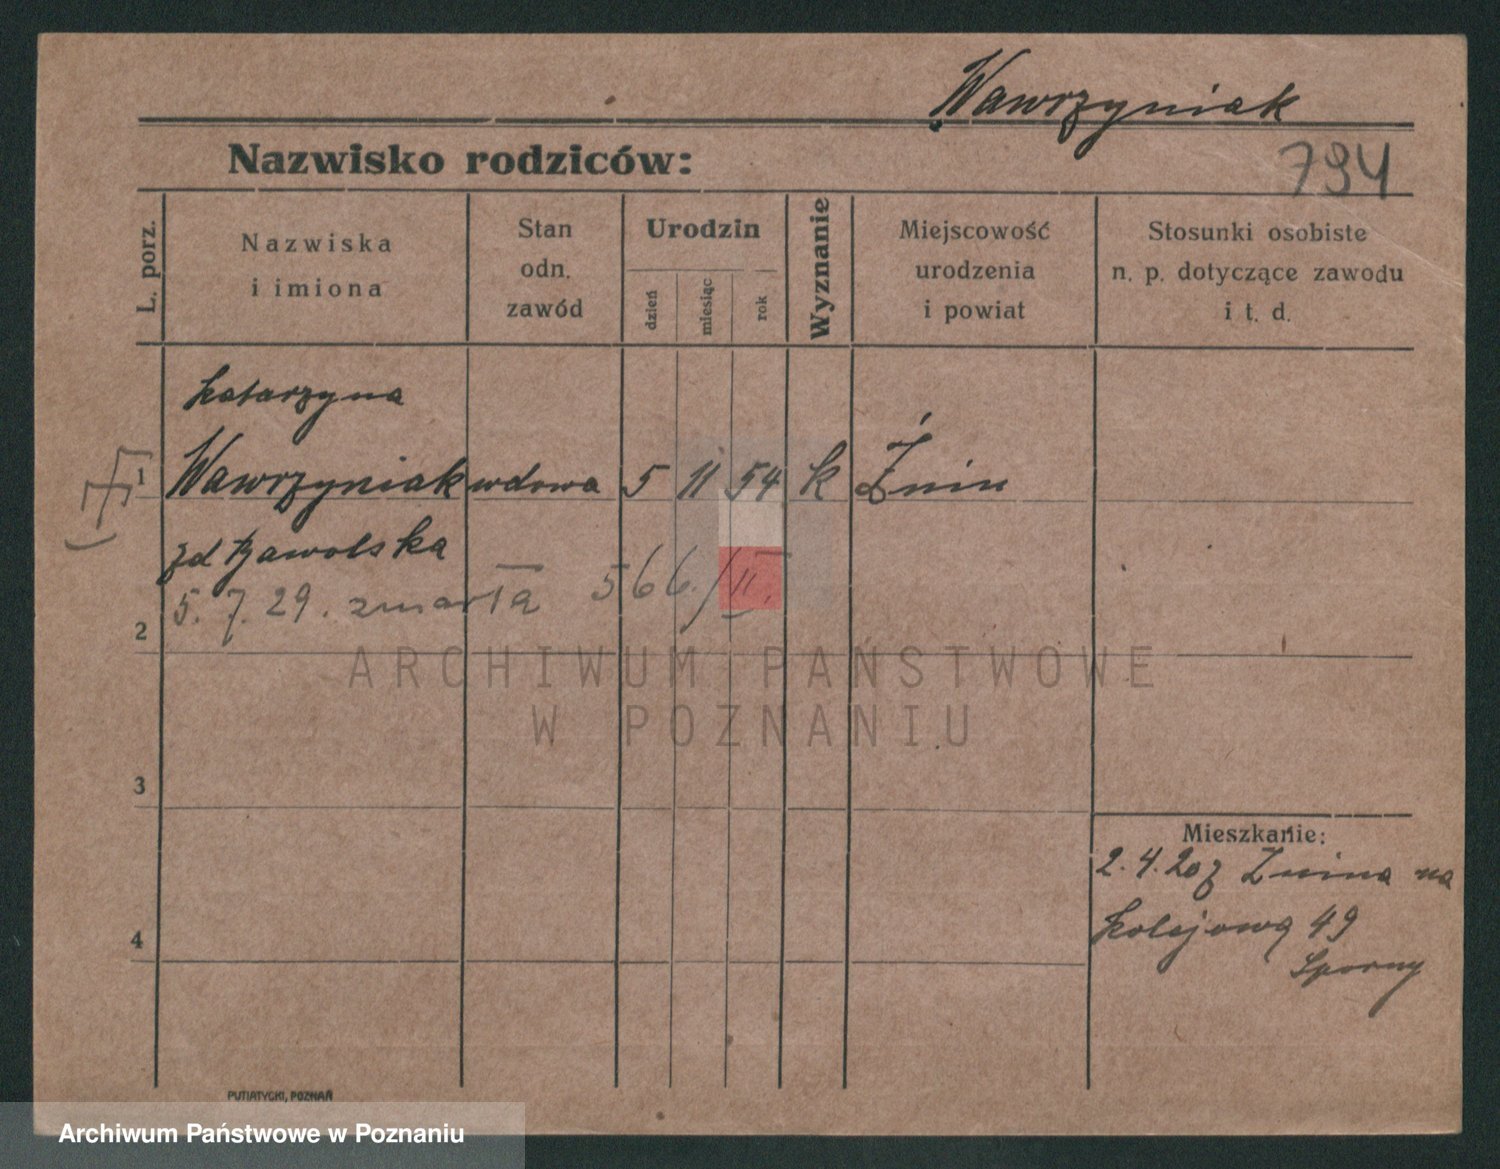 Wawrzyniak
Nazwisko rodziców:
794
L. porz.
Nazwiska
i imiona
Stan
odn.
zawód
Urodzin
dzień
miesiąc
rok
Wyznanie
Miejscowość
urodzenia
i powiat
Stosunki osobiste
n. p. dotyczące zawodu
i t. d.
Katarzyna
1 Wawrzyniak wdowa 5 11 54 k Żnin
zd
5. 7. 29. zmarła 566./II.
2
ARCHIWUM PAŃSTWOWE
W POZNANIU
3
Mieszkanie:
2.4.20 z Żnina na
Kolejową 49
Sporny
4
PUTIATYCKI, POZNAŃ
Archiwum Państwowe w Poznaniu